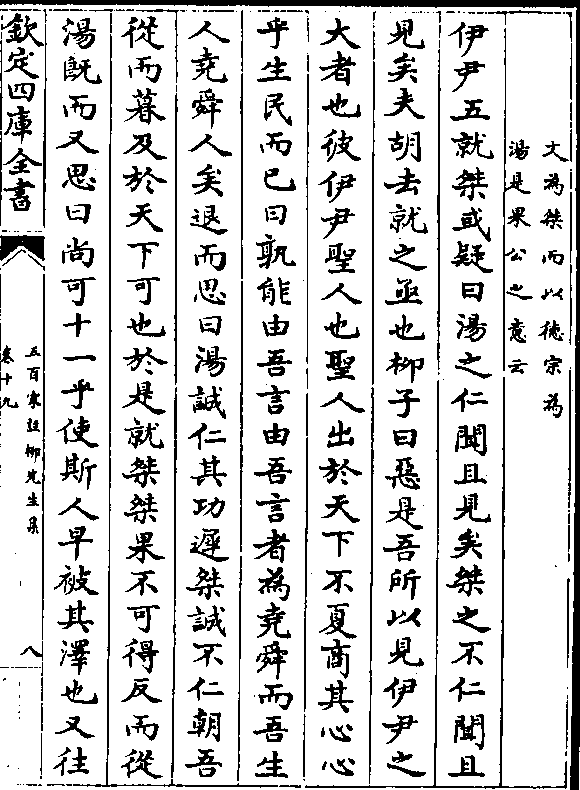 文為桀而以德宗為
湯是果公之意云
伊尹五就桀或疑曰湯之仁聞且見矣桀之不仁聞且
見矣夫胡去就之亟也柳子曰惡是吾所以見伊尹之
大者也彼伊尹聖人也聖人出於天下不夏商其心心
乎生民而已曰孰能由吾言由吾言者為堯舜而吾生
人堯舜人矣退而思曰湯誠仁其功遲桀誠不仁朝吾
從而暮及於天下可也於是就桀桀果不可得反而從
湯既而又思曰尚可十一乎使斯人早被其澤也又往
欽定四庫全書
五百家註柳先生集
卷十九
八